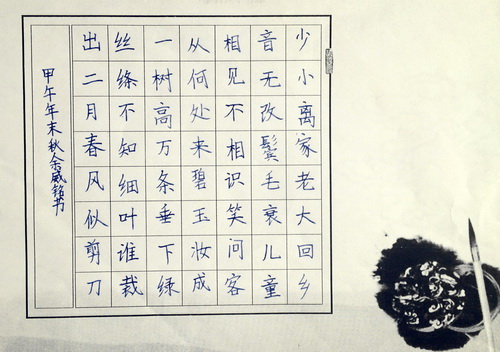 少小离家老大回乡
音无改鬓毛衰儿童
相见不相识笑问客
从何处来碧玉妆成
一树高万条垂下绿
丝绦不知细叶谁裁
出二月春风似剪刀
甲午年末秋余威铭书